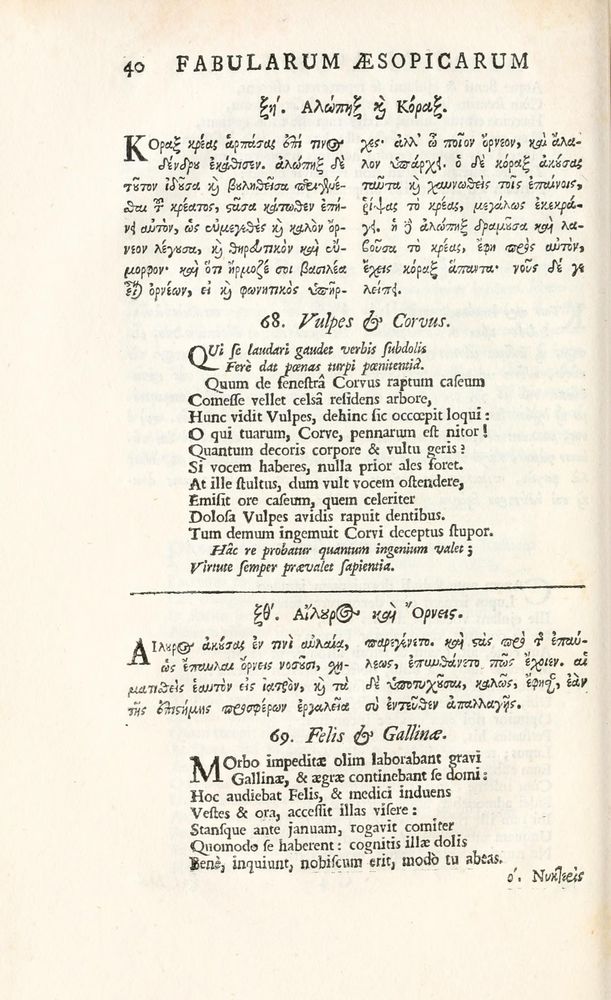 40 FABULARUM ÆSOPICARUM
ξη'. Αλώπηξ καὶ Κόραξ.
ΚΟραξ κρέας ἁρπάσας ἐπί τινος
δένδρου ἐκάθισεν. ἀλώπηξ δὲ
τοῦτον ἰδοῦσα καὶ βουληθεῖσα περιγενέ-
σθαι τοῦ κρέατος, στᾶσα κάτωθεν ἐπῄ-
νει αὐτὸν, ὡς εὐμεγέθες καὶ καλὸν ὄρ-
νεον λέγουσα, καὶ θηρευτικὸν καὶ εὔ-
μορφον· καὶ ὅτι ἥρμοζέ σοι βασιλέα
εἶναι ὀρνέων, εἰ καὶ φωνητικὸς ὑπῆρ-
χες· ἀλλ' ὦ ποῖον ὄρνεον, καὶ ἄλα-
λον ὑπάρχει. ὁ δὲ κόραξ ἀκούσας
ταῦτα καὶ χαυνωθεὶς τοῖς ἐπαίνοις,
ῥίψας τὸ κρέας, μεγάλως ἐκεκρά-
γει. ἡ δὲ ἀλώπηξ δραμοῦσα καὶ λα-
βοῦσα τὸ κρέας, ἔφη πρὸς αὐτὸν,
ἔχεις κόραξ ἅπαντα· νοῦς δέ γε
λείπει.
68. Vulpes & Corvus.
QUi se laudari gaudet verbis subdolis
Ferè dat pœnas turpi pœnitentiâ.
Quum de fenestrâ Corvus raptum caseum
Comesse vellet celsâ residens arbore,
Hunc vidit Vulpes, dehinc sic occœpit loqui:
O qui tuarum, Corve, pennarum est nitor!
Quantum decoris corpore & vultu geris?
Si vocem haberes, nulla prior ales foret.
At ille stultus, dum vult vocem ostendere,
Emisit ore caseum, quem celeriter
Dolosa Vulpes avidis rapuit dentibus.
Tum demum ingemuit Corvi deceptus stupor.
Hâc re probatur quantum ingenium valet;
Virtute semper prævalet sapientia.
ξθ'. Αἴλουρος καὶ Ὄρνεις.
ΑΙλουρος ἀκούσας ἔν τινι αὐλαίᾳ,
ὡς ἔπαυλαι ὄρνεις νοσοῦσι, σχη-
ματισθεὶς ἑαυτὸν εἰς ἰατρὸν, καὶ τὰ
τῆς ἐπιστήμης προσφέρων ἐργαλεῖα
παρεγένετο. καὶ στὰς πρὸ τῆς ἐπαύ-
λεως, ἐπυνθάνετο πῶς ἔχοιεν. αἱ
δὲ ὑποτυχοῦσαι, καλῶς, ἔφησαν, ἐὰν
σὺ ἐντεῦθεν ἀπαλλαγῇς.
69. Felis & Gallinæ.
MOrbo impeditæ olim laborabant gravi
Gallinæ, & ægræ continebant se domi:
Hoc audiebat Felis, & medici induens
Vestes & ora, accessit illas visere:
Stansque ante januam, rogavit comiter
Quomodo se haberent: cognitis illæ dolis
Benè, inquiunt, nobiscum erit, modò tu abeas.
ο'. Νυκτερὶς